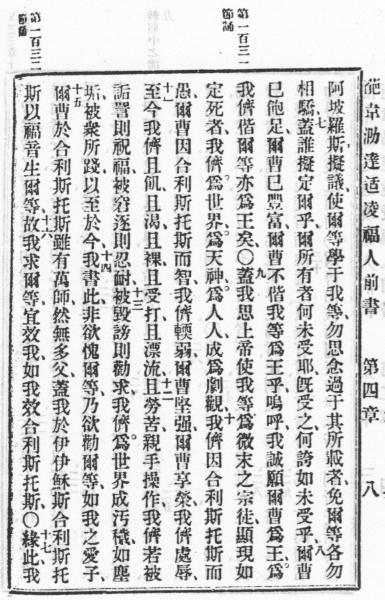 葩韋泐達适凌福人前書 第四章 八
第一百三一
節誦
阿坡羅斯擬議使爾等學于我等勿思念過于其所載者免爾等各勿
相驕七蓋誰擬定爾乎爾所有者何未受耶旣受之何誇如未受乎八爾曹
已飽足爾曹已豐富爾曹不偕我等爲王乎嗚呼我誠願爾曹爲王
我儕偕爾等亦爲王矣〇九蓋我思上帝使我等爲微末之宗徒顯現如
定死者我儕爲世界爲天神爲人人成爲劇觀十我儕因合利斯托斯而
愚爾曹因合利斯托斯而智我儕輭弱爾曹堅强爾曹享榮我儕處辱
十一至今我儕且飢且渴且裸且受打且漂流十二且勞苦親手操作我儕若被
詬詈則祝福被窘逐則忍耐十三被毀謗則勸求我儕爲世界成汚穢如塵
垢被衆所踐以至於今十四我書此非欲愧爾等乃欲勸爾等如我之愛子
第一百三二
節誦
十五爾曹於合利斯托斯雖有萬師然無多父蓋我於伊伊穌斯合利斯托
斯以福音生爾等十六故我求爾等宜效我如我效合利斯托斯〇十七緣此我